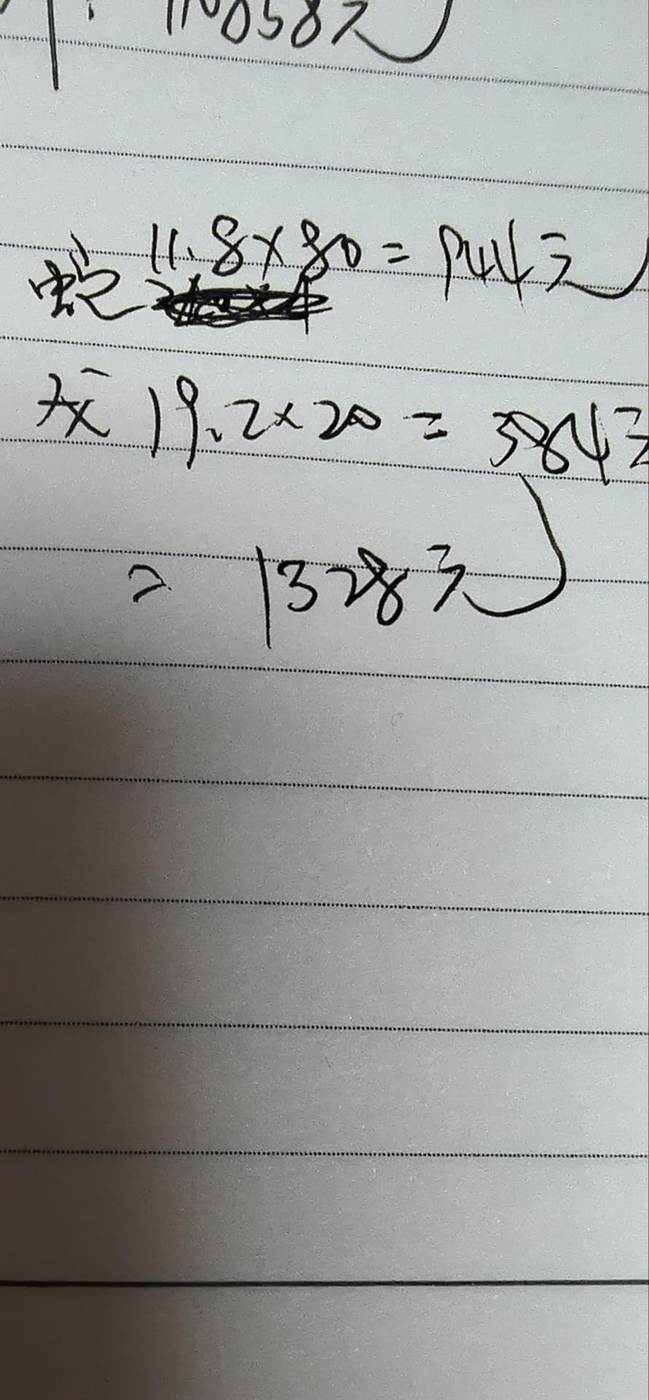 110858元
蛇 11.8×80=944元
灰 19.2×20=384元
= 1328元